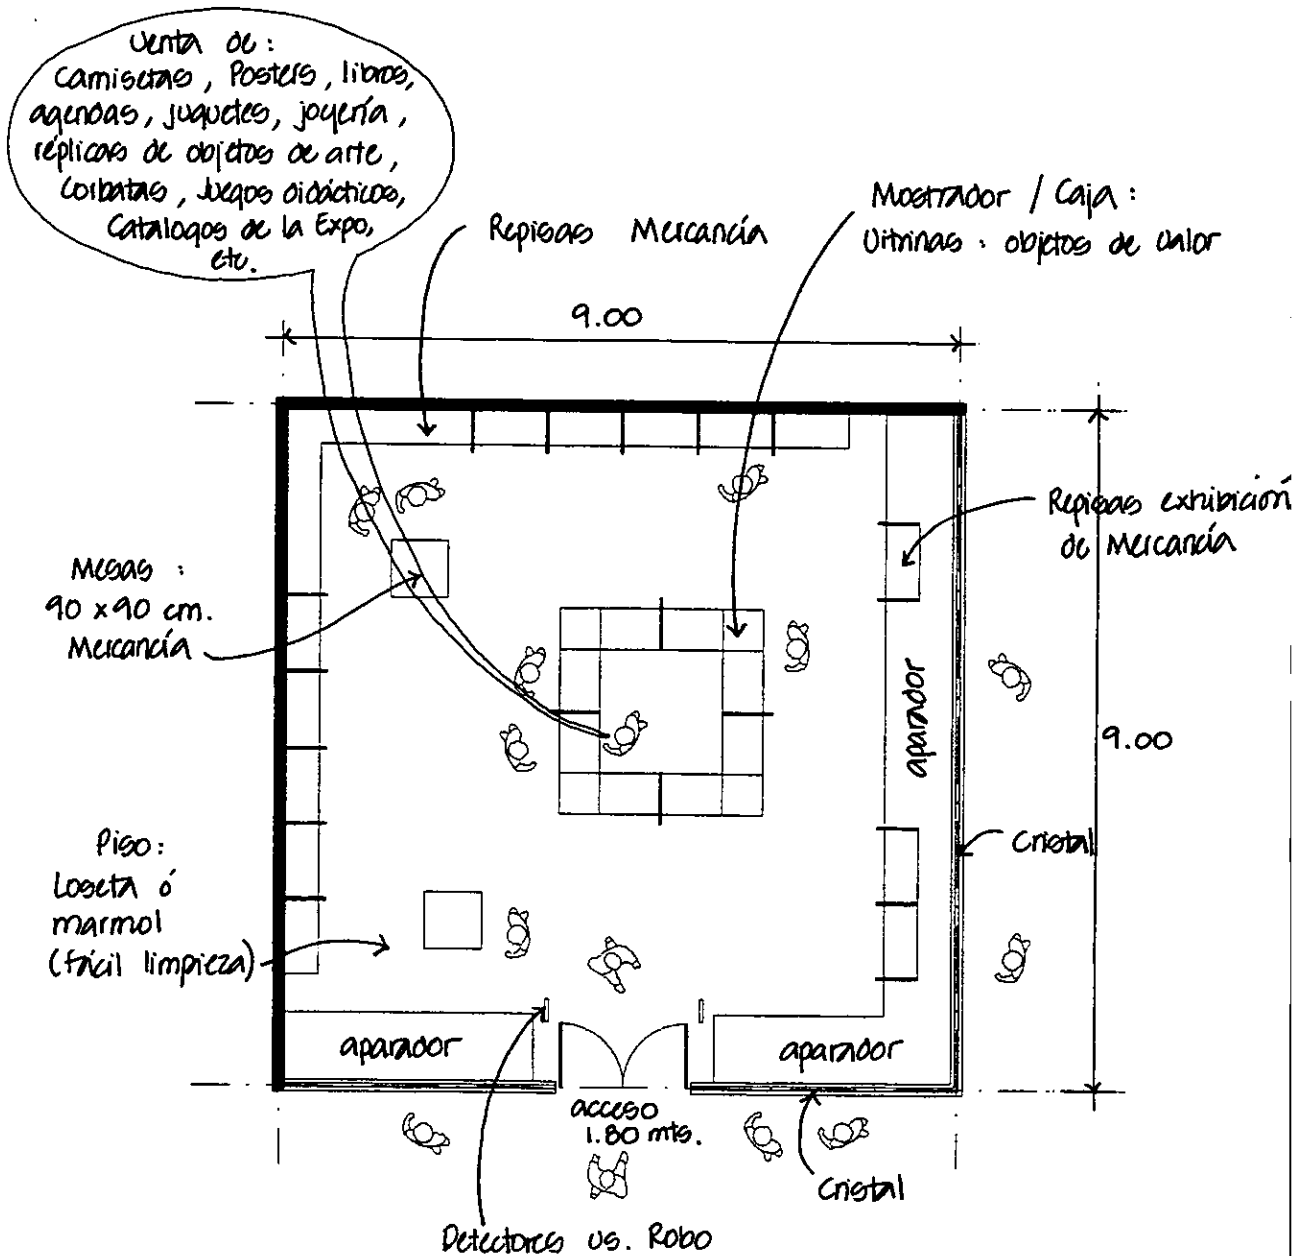 Venta de:
Camisetas, Posters, libros,
agendas, juguetes, joyería,
réplicas de objetos de arte,
Corbatas, Juegos didácticos,
Catalogos de la Expo,
etc.
Repisas Mercancía
Mostrador / Caja:
Vitrinas: objetos de valor
9.00
Repisas exhibición
de Mercancía
Mesas:
90 x 90 cm.
Mercancía
aparador
9.00
Cristal
Piso:
Loseta ó
marmol
(fácil limpieza)
aparador
aparador
acceso
1.80 mts.
Cristal
Detectores vs. Robo